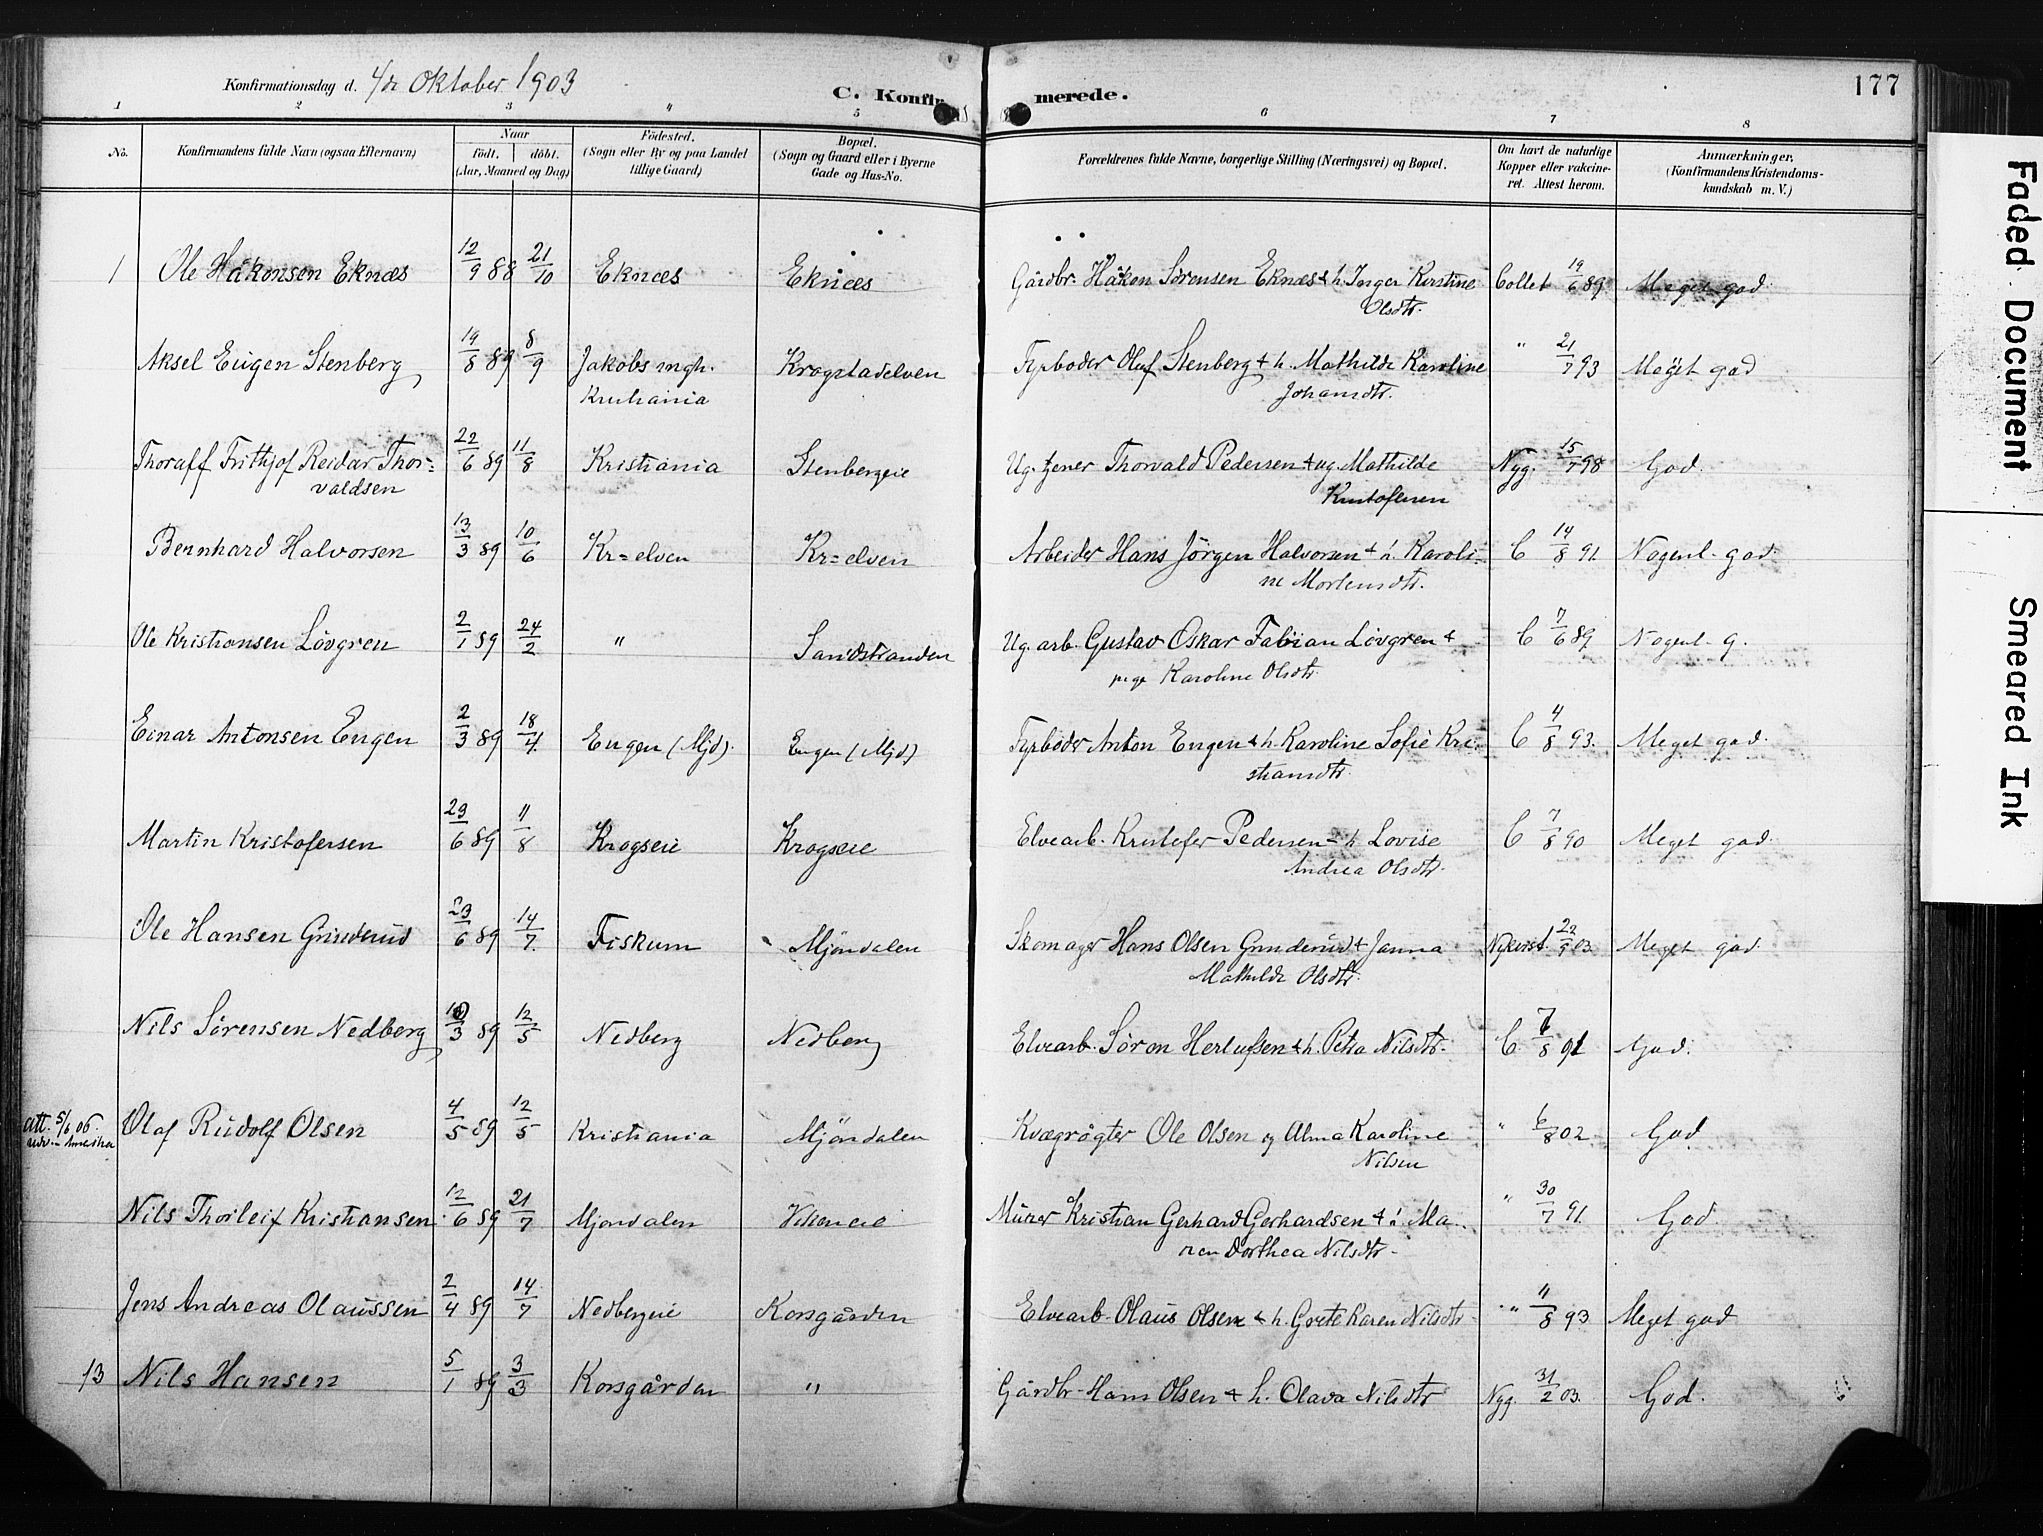 Konfirmationsdag d. 4/de Oktober 1903
C. Konfirmerede.
177
1 2 3 " 5 6 7 8
No.
Konfirmandens fulde Navn (ogsaa Efternavn)
Naar
födt. döbt.
(Aar, Maaned og Dag)
Födested.
(Sogn eller By og paa Landet tillige Gaard)
Bopæl.
(Sogn og Gaard eller i Byerne Gade og Hus-No.
Forældrenes fulde Navne, borgerlige Stilling (Næringsvei) og Bopæl.
Om havt de naturlige Kopper eller vakcineret. Attest herom.
Anmærkninger.
(Konfirmandens Kristendomskundskab m. V.)
1 Ole Håkonsen Eknæs 12/9 88 21/10 Eknæs Eknæs Gårdbr. Håkon Sørensen Eknæs & h. Inger Kirstine Collet 19/6 89 Meget god
Olsdtr.
Aksel Eugen Stenberg 19/8 89 8/9 Jakobs mgh. Krogstadelven Fyrbøder Oluf Stenberg & h. Mathilde Karoline " 21/7 93 Meget god
Kristiania Johansdtr.
Thoralf Frithjof Reidar Thor- 22/6 89 11/8 Kristiania Stenbergeie Ug. tjener Thorvald Pedersen & ug. Mathilde Nyg. 15/7 98 God.
valdsen Kristofersen
Bernhard Halvorsen 13/3 89 10/6 Kr=elven Kr=elven Arbeider Hans Jörgen Halvorsen & h. Karoli- C 14/8 91 Nogenl. god
ne Mortensdtr.
Ole Kristiansen Lövgren 2/1 89 24/2 " Sandstranden Ug. arb. Gustav Oskar Fabian Lövgren & C 7/6 89 Nogenl. g.
pige Karoline Olsdtr.
Einar Antonsen Engen 2/3 89 18/4 Engen (Mjd). Engen (Mjd) Fyrbøder Anton Engen & h. Karoline Sofie Kri- C 4/8 93. Meget god.
stiansdtr.
Martin Kristofersen 29/6 89 11/8 Krogseie Krogseie Elvearb. Kristofer Pedersen = h Lovise C 7/8 90 Meget god.
Andrea Olsdtr.
Ole Hansen Grinderud 23/6 89 14/7 Fiskum Mjöndalen Skomager Hans Olsen Grinderud & Janna 22/9 03 Meget god
Mathilde Olsdtr.
Nils Sörensen Nedberg 3 89 12/5 Nedberg Nedberg Elvearb. Sören Herlufsen & h. Petra Nilsdtr. C. 7/8 91 God.
att. 5/6 06. Olaf Rudolf Olsen 4/5 89 12/5 Kristiania Mjöndalen Kvægrögter Ole Olsen og Alma Karoline " 6/8 02 God.
udv. - Amerika Nilsen
Nils Thorleif Kristiansen 12/6 89 21/7 Mjöndalen Murer Kristian Gerhard Gerhardsen & h. Ma- " 30/7 91. God.
ren Dorthea Nilsdtr.
Jens Andreas Olaussen 2/4 89 14/7 Nedbergeie Korsgården Elvearb. Olaus Olsen & h. Grete Karen Nilsdtr. " 11/8 93 Meget god
13 Nils Hansen 5/1 89 3/3 Korsgården " Gårdbr. Hans Olsen & h. Olava Nilsdtr Nyg. 31/2 03. God.
Faded Document
Smeared Ink